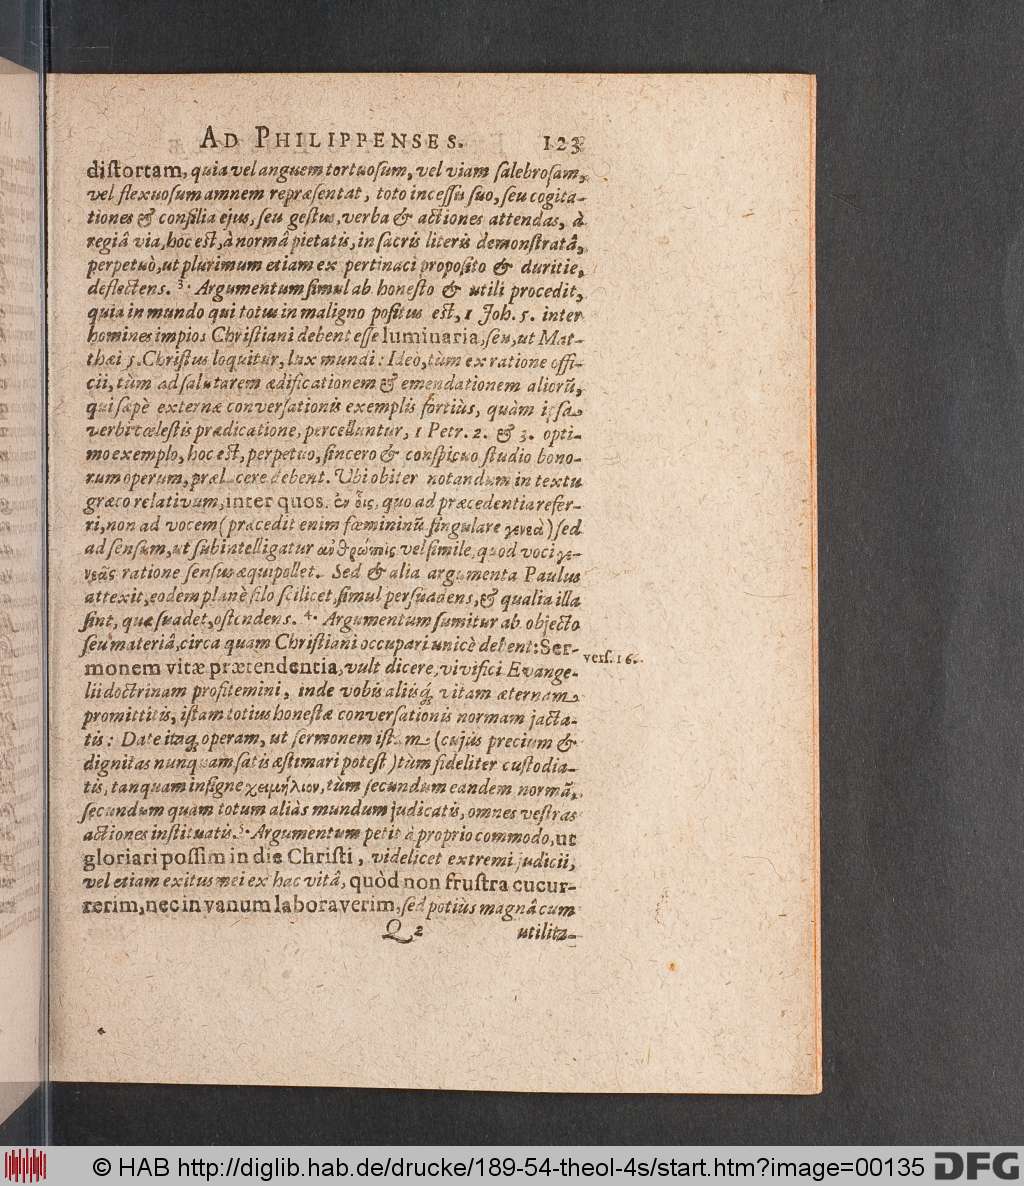 AD PHILIPPENSES. 123
distortam, quia vel anguem tortuosum, vel viam salebrosam,
vel flexuosum amnem repræsentat, toto incessu suo, seu cogita-
tiones & consilia ejus, seu gestus, verba & actiones attendas, à
regiâ via, hoc est, à normâ pietatis, in sacris literis demonstratâ,
perpetuò, ut plurimum etiam ex pertinaci proposito & duritie,
deflectens. 3. Argumentum simul ab honesto & utili procedit,
quia in mundo qui totus in maligno positus est, 1 Joh. 5. inter
homines impios Christiani debent esse luminaria, seu, ut Mat-
thæi 5. Christus loquitur, lux mundi: Ideò, tùm ex ratione offi-
cii, tùm ad salutarem ædificationem & emendationem aliorũ,
qui sæpè externæ conversationis exemplis fortiùs, quàm ipsa
verbi cœlestis prædicatione, percelluntur, 1 Petr. 2. & 3. opti-
mo exemplo, hoc est, perpetuo, sincero & conspicuo studio bono-
rum operum, prælucere debent. Ubi obiter notandum in textu
græco relativum, inter quos, ἐν οἷς, quo ad præcedentia refer-
ri, non ad vocem (præcedit enim fœmininũ singulare γενεὰ) sed
ad sensum, ut subintelligatur ἀνθρώποις vel simile, quod voci γε-
νεᾶς ratione sensus æquipollet. Sed & alia argumenta Paulus
attexit, eodem planè filo scilicet, simul persuadens, & qualia illa
sint, quæ suadet, ostendens. 4. Argumentum sumitur ab objecto
seu materiâ, circa quam Christiani occupari unicè debent: Ser-
monem vitæ prætendentia, vult dicere, vivifici Evange-
vers. 16.
lii doctrinam profitemini, inde vobis aliisq; vitam æternam
promittitis, istam totius honestæ conversationis normam jacta-
tis: Date itaq; operam, ut sermonem istum (cujus precium &
dignitas nunquam satis æstimari potest) tùm fideliter custodia-
tis, tanquam insigne χειμήλιον, tùm secundum eandem normã,
secundum quam totum aliàs mundum judicatis, omnes vestras
actiones instituatis. 5. Argumentum petit à proprio commodo, ut
gloriari possim in die Christi, videlicet extremi judicii,
vel etiam exitus mei ex hac vitâ, quòd non frustra cucur-
rerim, nec in vanum laboraverim, sed potiùs magnâ cum
Q 2 utilita-
© HAB http://diglib.hab.de/drucke/189-54-theol-4s/start.htm?image=00135 DFG